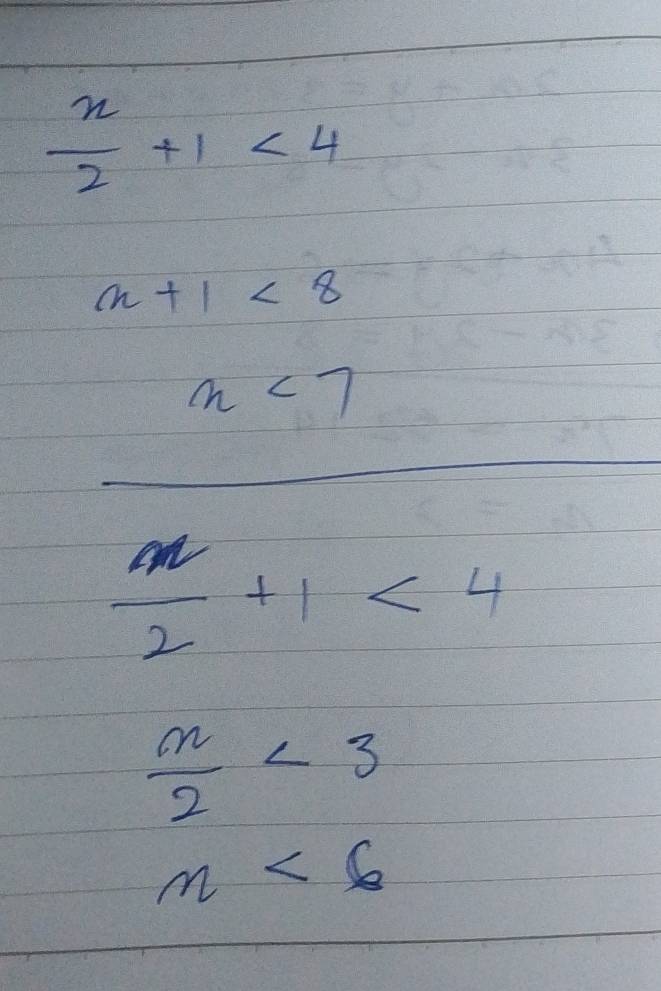 n/2 + 1 < 4
n + 1 < 8
n < 7
n/2 + 1 < 4
n/2 < 3
n < 6